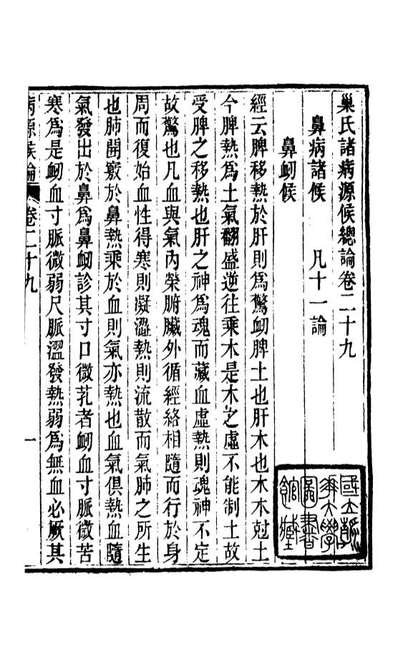 巢氏諸病源候總論卷二十九
鼻病諸候 凡十一論
鼻衂候
經云脾移熱於肝則爲驚衂脾土也肝木也木本尅土
今脾熱爲土氣翻盛逆往乘木是木之虛不能制土故
受脾之移熱也肝之神爲魂而藏血虛熱則魂神不定
故驚也凡血與氣內榮腑臟外循經絡相隨而行於身
周而復始血性得寒則凝澀熱則流散而氣肺之所生
也肺開竅於鼻熱乘於血則氣亦熱也血氣俱熱血隨
氣發出於鼻爲鼻衂診其寸口微芤者衂血寸脈微苦
寒爲是衂血寸脈微弱尺脈澀發熱弱爲無血必厥其
病源候論 卷二十九 一
國立
大學
圖書
館藏